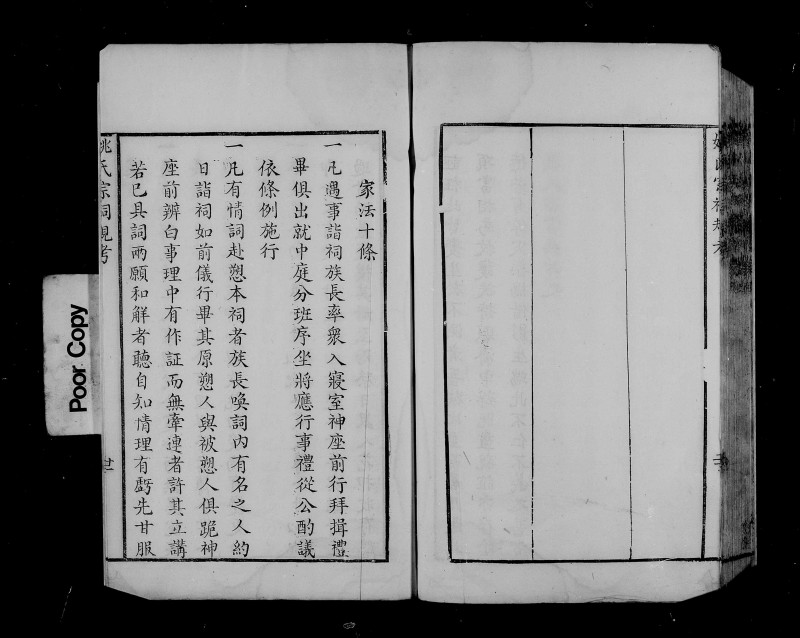 家法十條
一凡遇事詣祠族長率衆入寢室神座前行拜揖禮
畢俱出就中庭分班序坐將應行事禮從公酌議
依條例施行
一凡有情詞赴愬本祠者族長喚詞内有名之人約
日詣祠如前儀行畢其原愬人與被愬人俱跪神
座前辨白事理中有作証而無牽連者許其立講
若已具詞兩願和解者聽自知情理有虧先甘服
姚氏宗祠規考
廿
Poor Copy